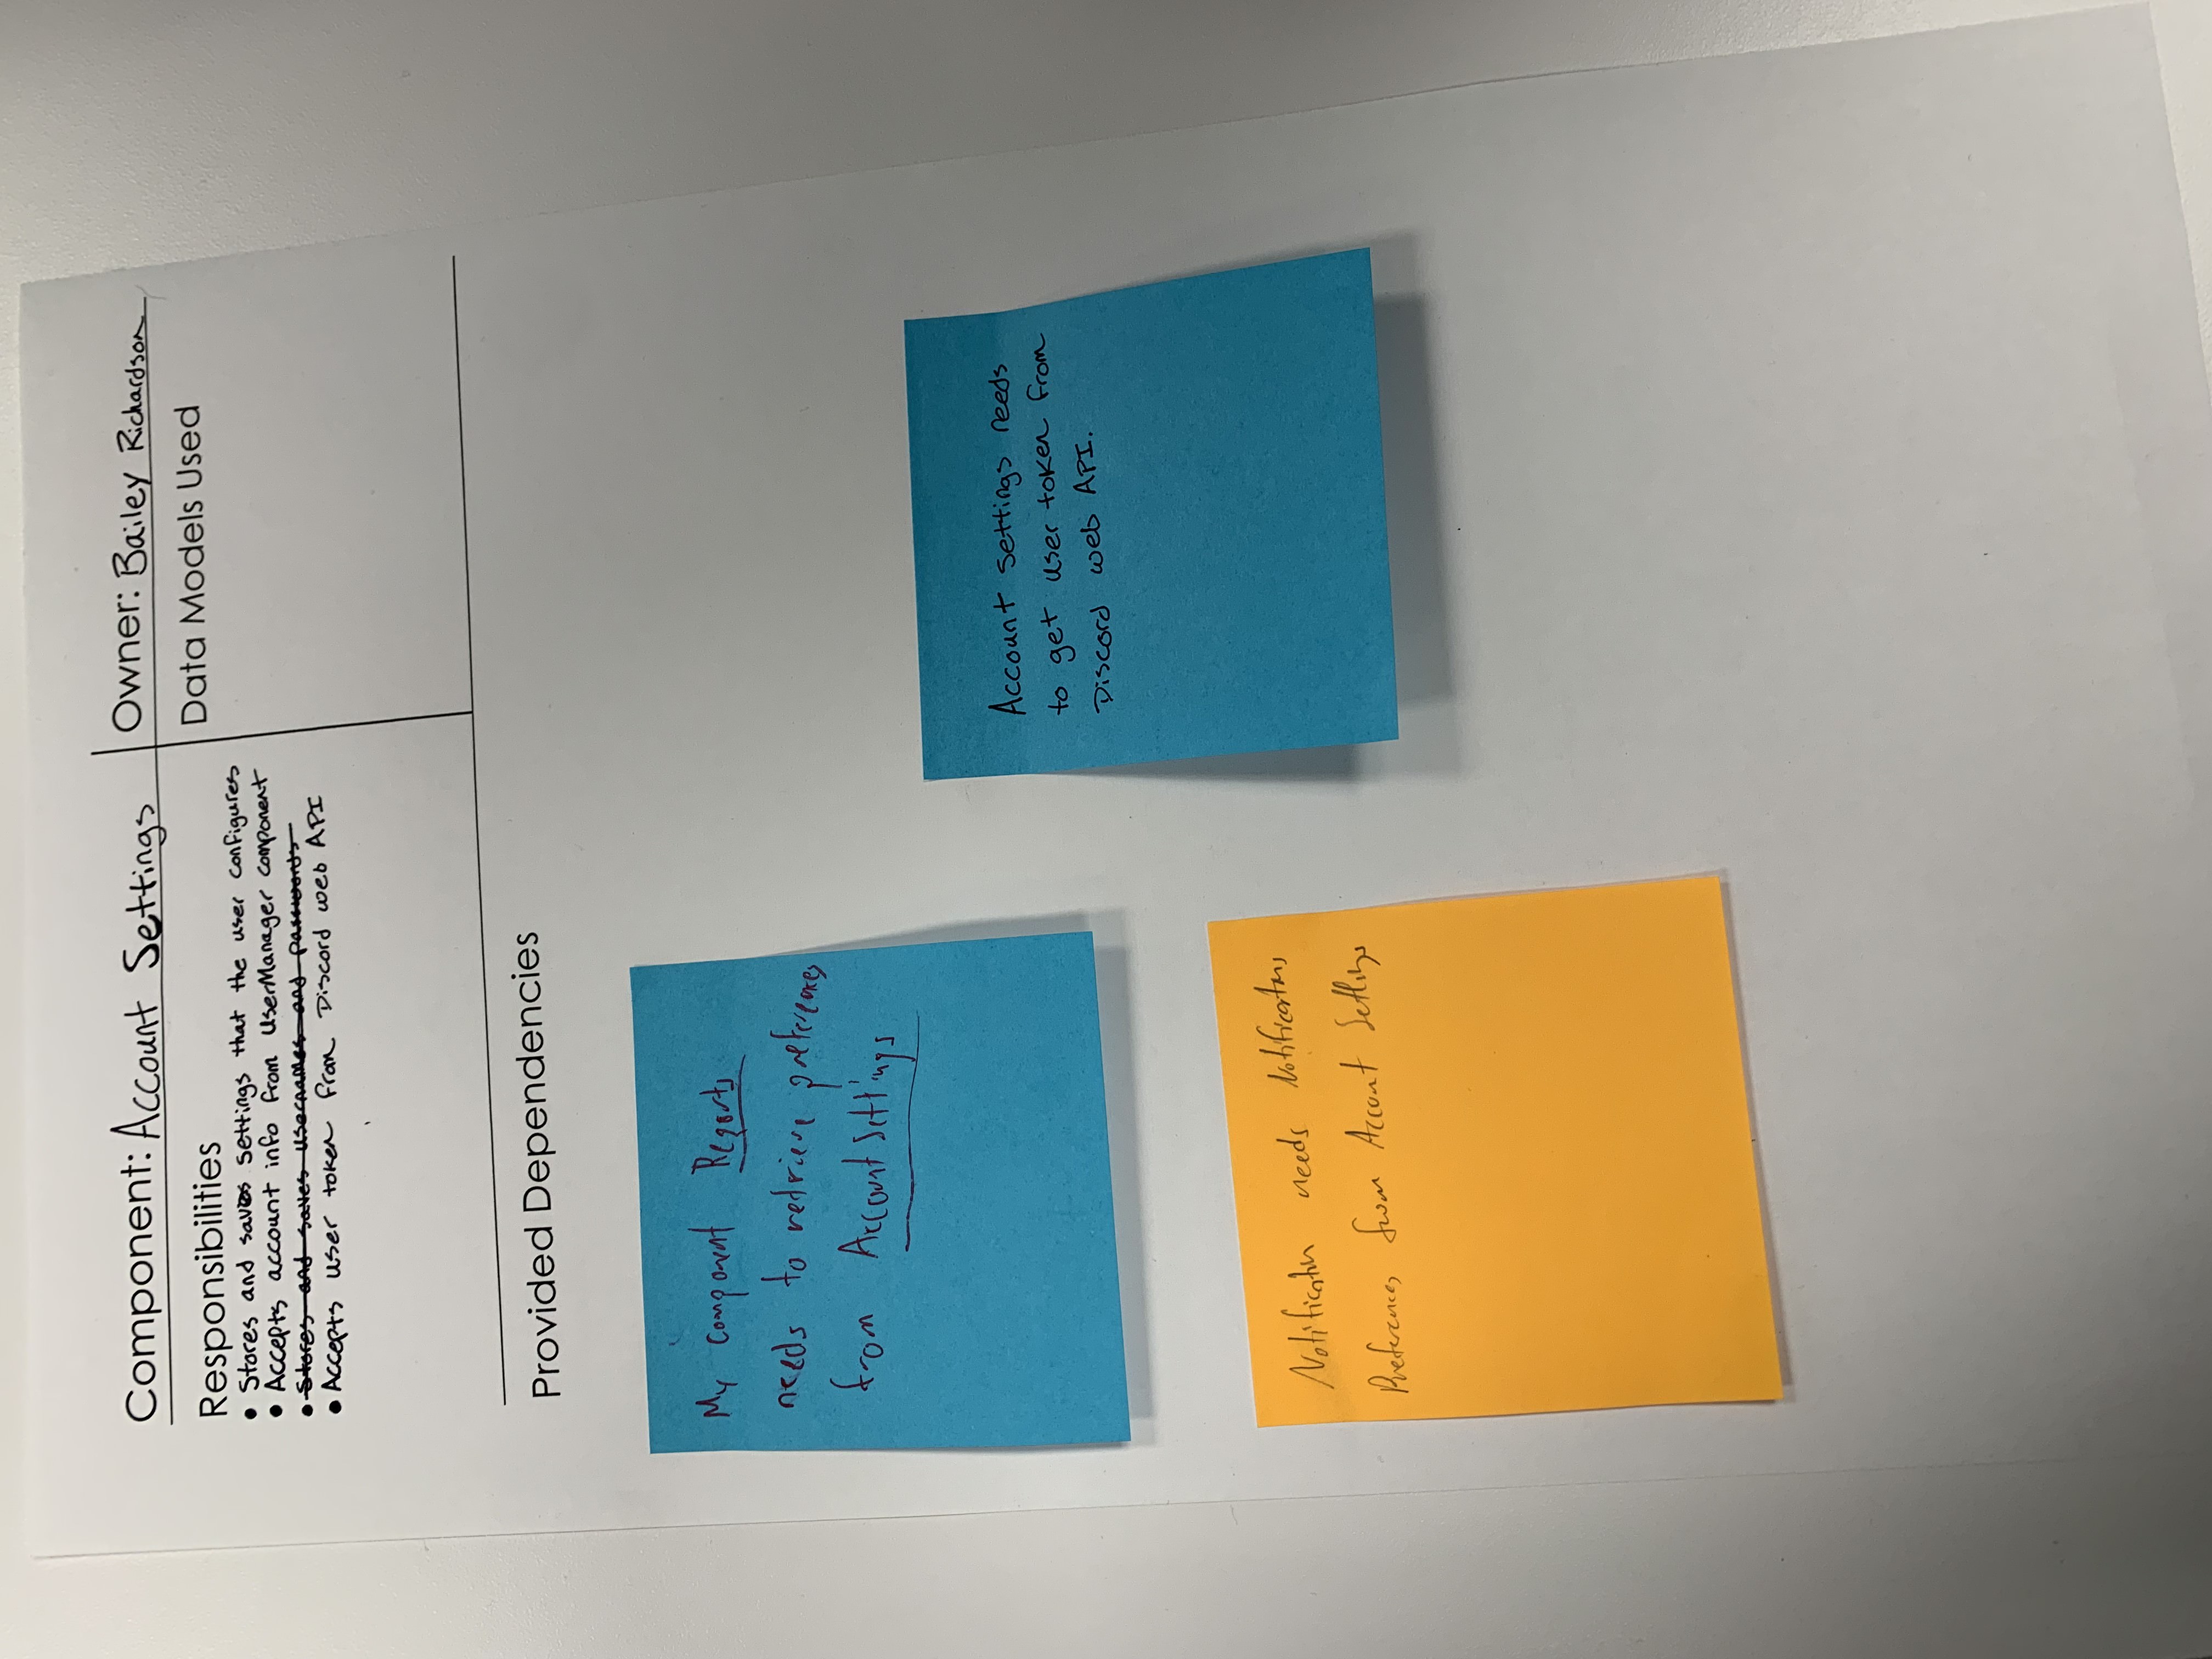 Component: Account Settings
Owner: Bailey Richardson
Responsibilities
• Stores and saves settings that the user configures
• Accepts account info from UserManager component
• Stores and saves usernames and passwords
• Accepts user token from Discord web API
Data Models Used
Provided Dependencies
My component Reports
needs to retrieve preferences
from Account Settings
Account settings needs
to get user token from
Discord web API.
Notification needs Notifications
Preferences from Account Settings